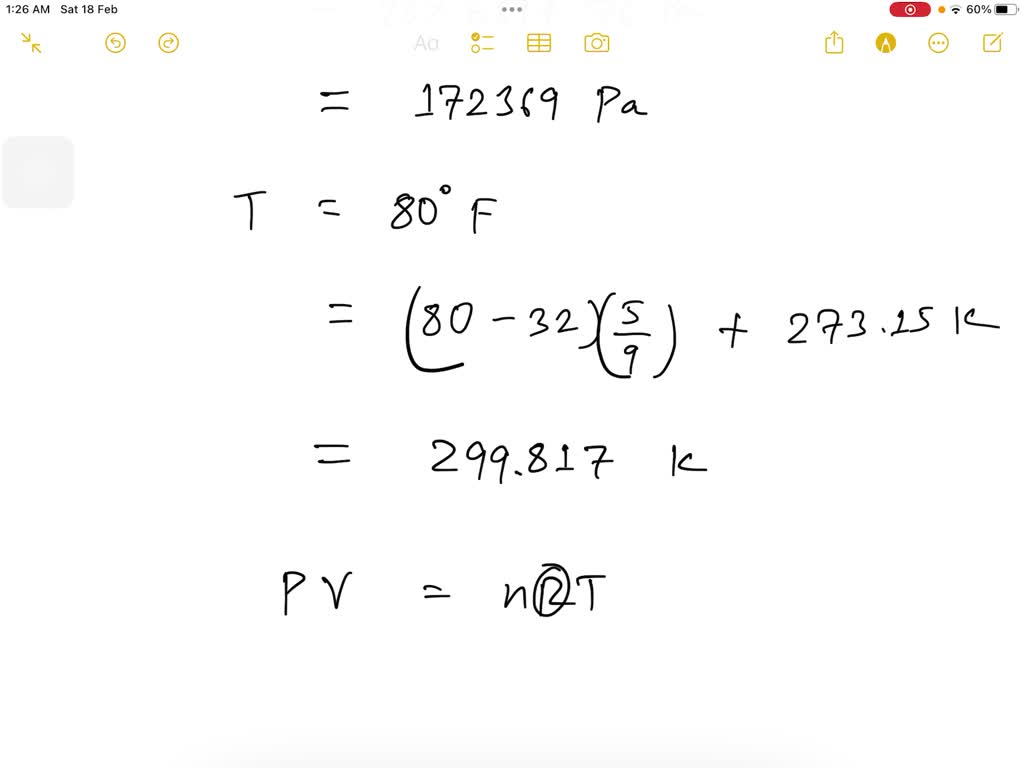 1:26 AM Sat 18 Feb
60%
Aa
= 172369 Pa
T = 80° F
= (80 - 32)(5/9) + 273.15 K
= 299.817 K
PV = nRT